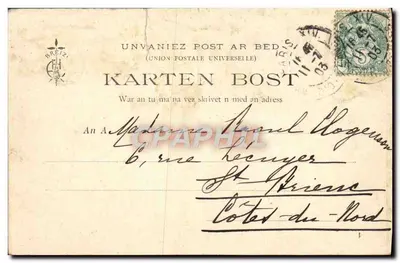 BREIZ
UNVANIEZ POST AR BED
(UNION POSTALE UNIVERSELLE)
KARTEN BOST
War an tu ma na ver skrivet n med an adress
PARIS XIV
03
An A Madame
6, rue Lécuyer
St Brieuc
Côtes-du-Nord
CPAPHIL